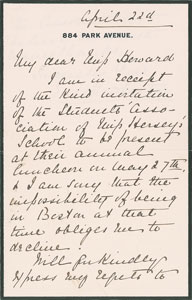 April 22d
884 PARK AVENUE.
My dear Miss Howard
I am in receipt
of the kind invitation
of the Students' Asso-
ciation of Miss Hersey's
School to be present
at their annual
luncheon on May 27th.
& I am sorry that the
impossibility of being
in Boston at that
time obliges me to
decline.
Will you kindly
express my regrets to